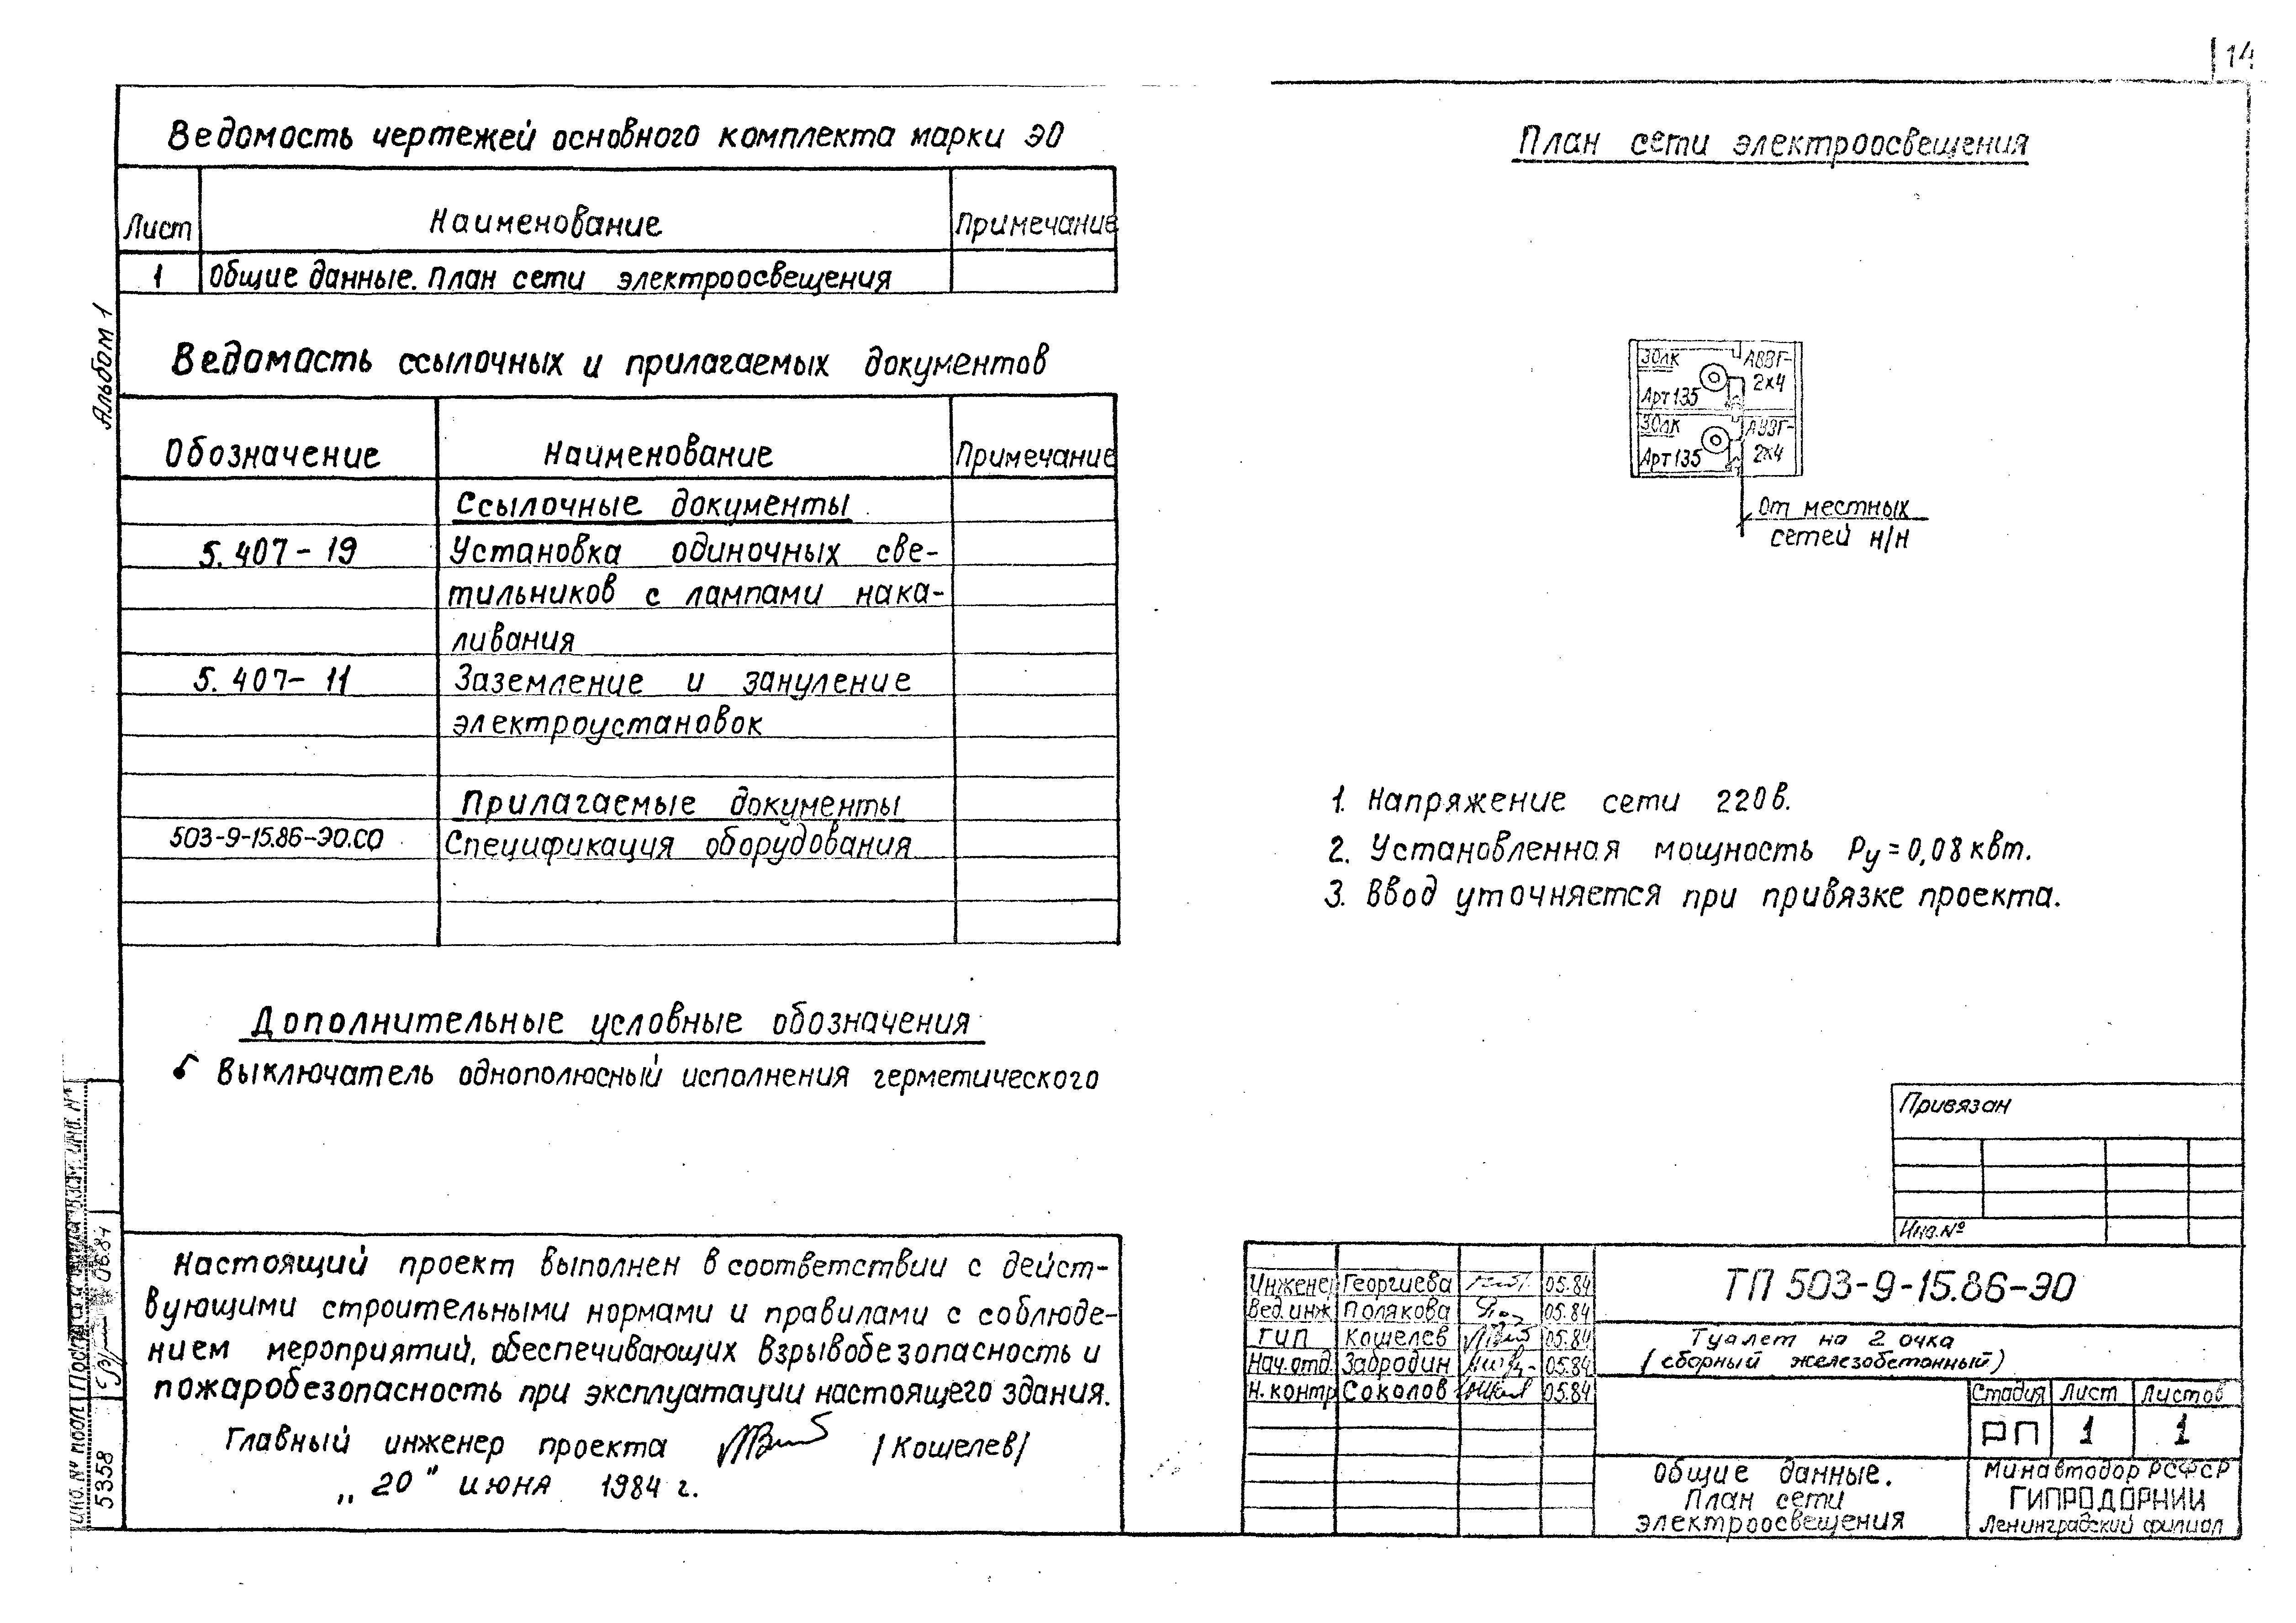 14
Альбом 1
Ведомость чертежей основного комплекта марки ЭО
Лист Наименование Примечание
1 Общие данные. План сети электроосвещения
Ведомость ссылочных и прилагаемых документов
Обозначение Наименование Примечание
Ссылочные документы
5.407-19 Установка одиночных све-
тильников с лампами нака-
ливания
5.407-11 Заземление и зануление
электроустановок
Прилагаемые документы
503-9-15.86-ЭО.СО Спецификация оборудования
Дополнительные условные обозначения
Выключатель однополюсный исполнения герметического
Настоящий проект выполнен в соответствии с дейст-
вующими строительными нормами и правилами с соблюде-
нием мероприятий, обеспечивающих взрывобезопасность и
пожаробезопасность при эксплуатации настоящего здания.
Главный инженер проекта /Кошелев/
„20" июня 1984 г.
Инв. № подл.
5358
План сети электроосвещения
30лк АВВГ-
Арт135 2х4
30лк АВВГ-
Арт135 2х4
От местных
сетей н/н
1. Напряжение сети 220в.
2. Установленная мощность Ру=0,08 квт.
3. Ввод уточняется при привязке проекта.
Привязан
Инв.№
Инженер Георгиева 05.84
Вед.инж Полякова 05.84
ГИП Кошелев 05.84
Нач.отд Забродин 05.84
Н.контр Соколов 05.84
ТП 503-9-15.86-ЭО
Туалет на 2 очка
(сборный железобетонный)
Стадия Лист Листов
РП 1 1
Общие данные.
План сети
электроосвещения
Минавтодор РСФСР
ГИПРОДОРНИИ
Ленинградский филиал